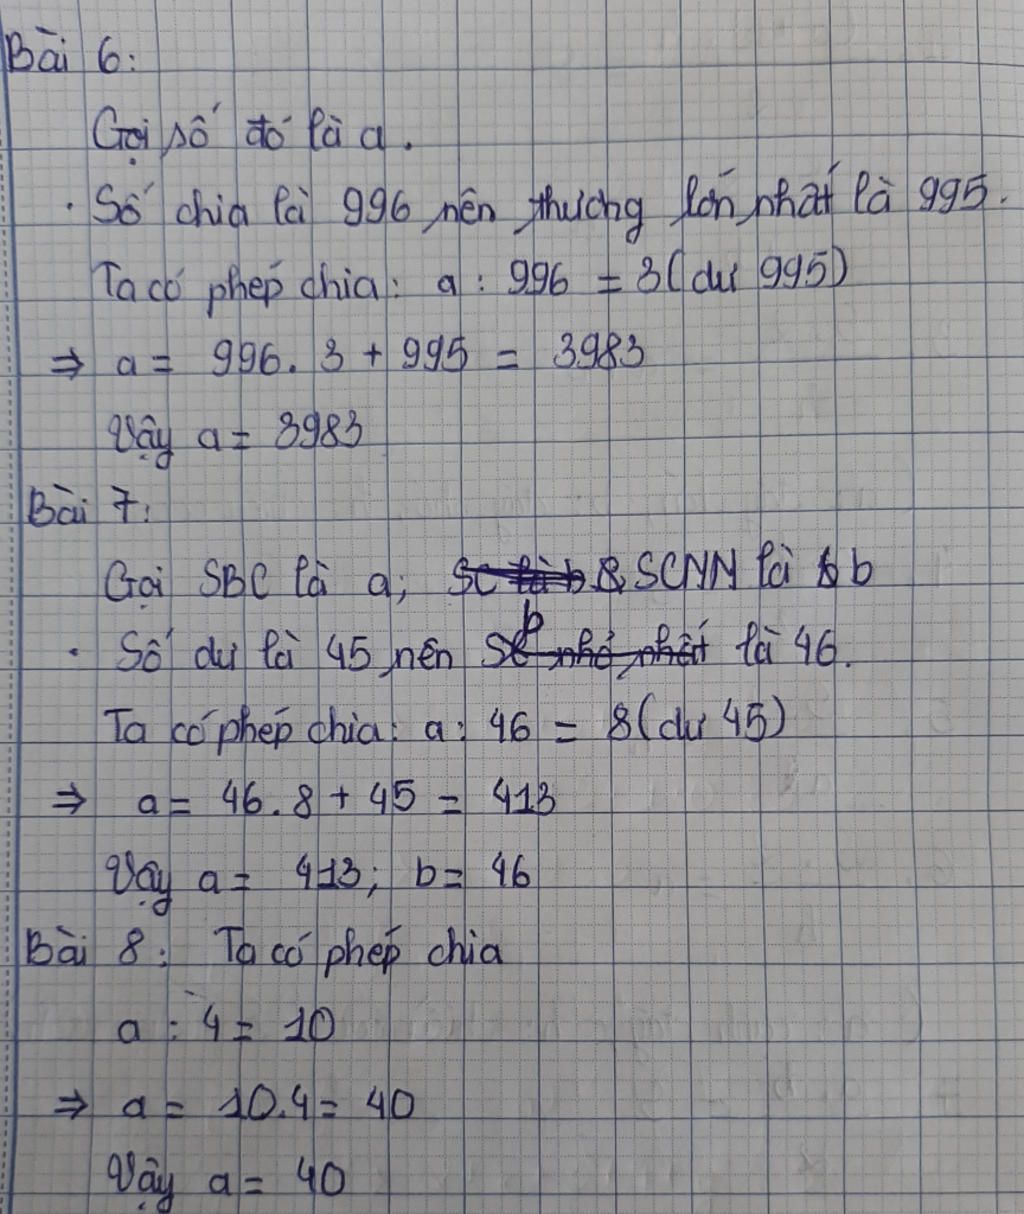 Bài 6:
Gọi số đó là a.
. Số chia là 996 nên thương lớn nhất là 995.
Ta có phép chia: a : 996 = 3 (dư 995)
⇒ a = 996. 3 + 995 = 3983
Vậy a = 3983
Bài 7:
Gọi SBC là a; SCNN là b
. Số dư là 45 nên b là 46.
Ta có phép chia: a : 46 = 8 (dư 45)
⇒ a = 46. 8 + 45 = 413
Vậy a = 413; b = 46
Bài 8: Ta có phép chia
a : 4 = 10
⇒ a = 10.4 = 40
Vậy a = 40